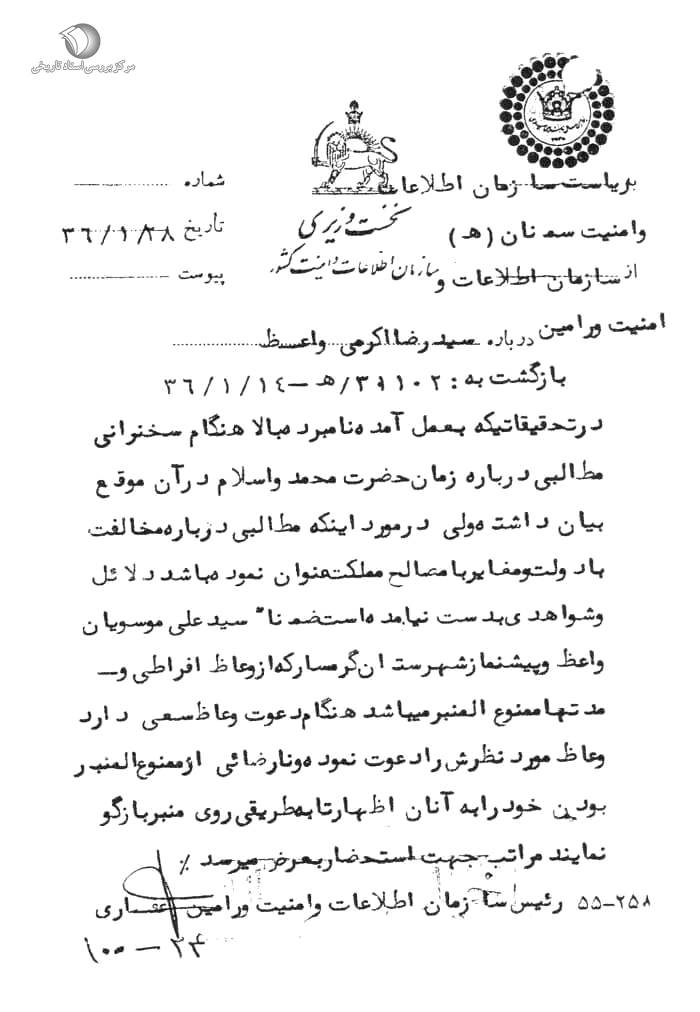 مرکز بررسی اسناد تاریخی
بریاست سازمان اطلاعات
وامنیت سمنان (هـ)
از سازمان اطلاعات و
امنیت ورامین
نخست وزیری
سازمان اطلاعات و امنیت کشور
شماره
تاریخ ۳۶/۱/۲۸
پیوست
درباره سیدرضا اکرمی واعظ
بازگشت به : ۳۱۱۰۲/هـ – ۳۶/۱/۱٤
درتحقیقاتیکه بعمل آمده نامبرده بالا هنگام سخنرانی
مطالبی درباره زمان حضرت محمد واسلام درآن موقع
بیان داشته ولی درمورد اینکه مطالبی درباره مخالفت
بادولت ومغایر با مصالح مملکت عنوان نموده باشد دلائل
وشواهدی بدست نیامده است ضمناً سیدعلی موسویان
واعظ وپیشنماز شهرستان گرمسار که ازوعاظ افراطی و–
مدتها ممنوع المنبر میباشد هنگام دعوت وعاظ سعی دارد
وعاظ مورد نظرش رادعوت نموده ونارضائی ازممنوع المنبر
بودن خود رابه آنان اظهار تا به طریقی روی منبر بازگو
نمایند مراتب جهت استحضار بعرض میرسد ٪
رئیس سازمان اطلاعات وامنیت ورامین غفاری
۵۵–۲۵۸
۲۴ – ۱۰۰